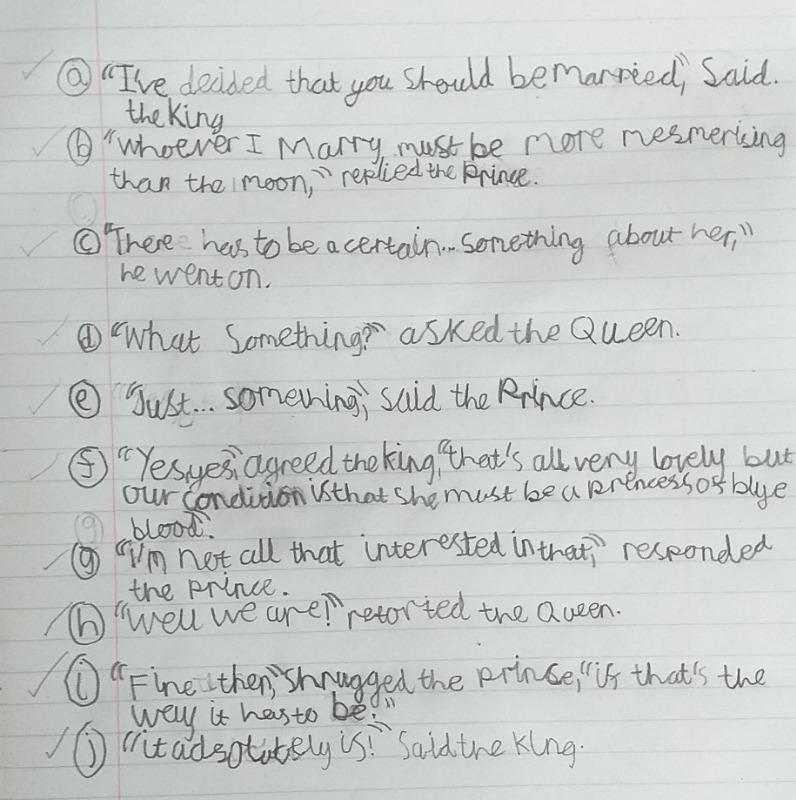 ⓐ "I've decided that you should be married," Said.
the King
ⓑ "whoever I Marry must be more mesmerising
than the moon," replied the Prince.
ⓒ "There has to be a certain... something about her,"
he went on.
ⓓ "What Something?" asked the Queen.
ⓔ "Just... something," said the Prince.
ⓕ "Yes, yes," agreed the king, "that's all very lovely but
our condition is that she must be a princess of blye
blood".
ⓖ "I'm not all that interested in that," responded
the prince.
ⓗ "Well we are!" retorted the Queen.
ⓘ "Fine then," shrugged the prince, "if that's the
way it has to be."
ⓙ "it adsolutely is!" Said the King.